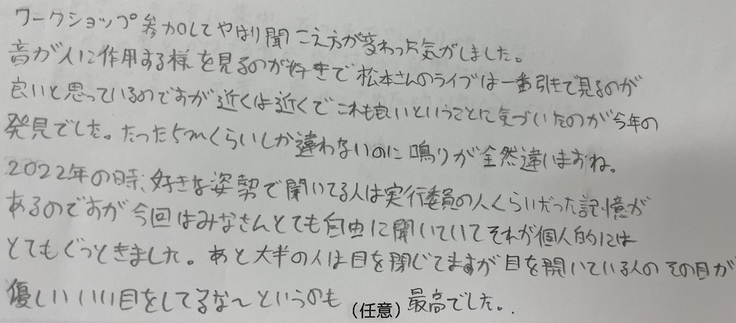 ワークショップ参加してやはり聞こえ方が変わった気がしました。
音が人に作用する様を見るのが好きで松本さんのライブは一番引きで見るのが
良いと思っているのですが近くは近くでこれも良いということに気づいたのが今年の
発見でした。たった5mくらいしか違わないのに鳴りが全然違いますね。
2022年の時、好きな姿勢で聞いてる人は実行委員の人くらいだった記憶が
あるのですが今回はみなさんとても自由に聞いていてそれが個人的には
とてもぐっときました。あと大半の人は目を閉じてますが目を開いている人のその目が
優しいいい目をしてるな〜というのも(任意)最高でした。